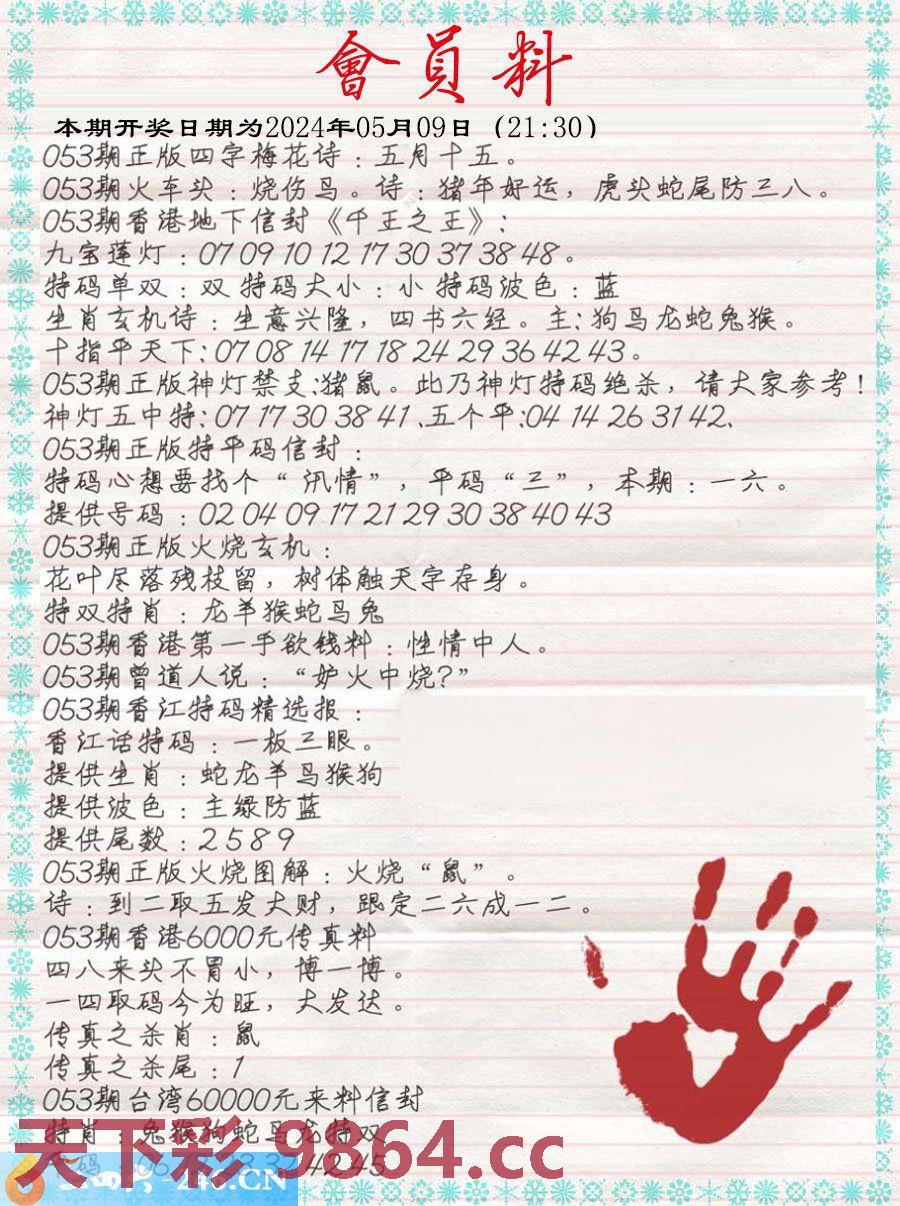 會員料
本期开奖日期为2024年05月09日（21:30）
053期正版四字梅花诗：五月十五。
053期火车头：烧伤鸟。诗：猪年好运，虎头蛇尾防三八。
053期香港地下信封《千王之王》：
九宝莲灯：07 09 10 12 17 30 37 38 48。
特码单双：双 特码大小：小 特码波色：蓝
生肖玄机诗：生意兴隆，四书六经。主:狗马龙蛇兔猴。
十指平天下:07 08 14 17 18 24 29 36 42 43。
053期正版神灯禁支:猪鼠。此乃神灯特码绝杀，请大家参考！
神灯五中特:07 17 30 38 41 .五个平:04 14 26 31 42.
053期正版特平码信封：
特码心想要找个“汛情”，平码“三”，本期：一六。
提供号码：02 04 09 17 21 29 30 38 40 43
053期正版火烧玄机：
花叶尽落残枝留，树体触天字存身。
特双特肖：龙羊猴蛇马兔
053期香港第一手欲钱料：性情中人。
053期曾道人说：“妒火中烧?”
053期香江特码精选报：
香江话特码：一板三眼。
提供生肖：蛇龙羊马猴狗
提供波色：主绿防蓝
提供尾数：2 5 8 9
053期正版火烧图解：火烧“鼠”。
诗：到二取五发大财，跟定二六成一二。
053期香港6000元传真料
四八来头不冒小，博一博。
一四取码今为旺，大发达。
传真之杀肖：鼠
传真之杀尾：1
053期台湾60000元来料信封
特肖：兔猴狗蛇马龙特双
天下彩 9864.cc
42 45
246.CN